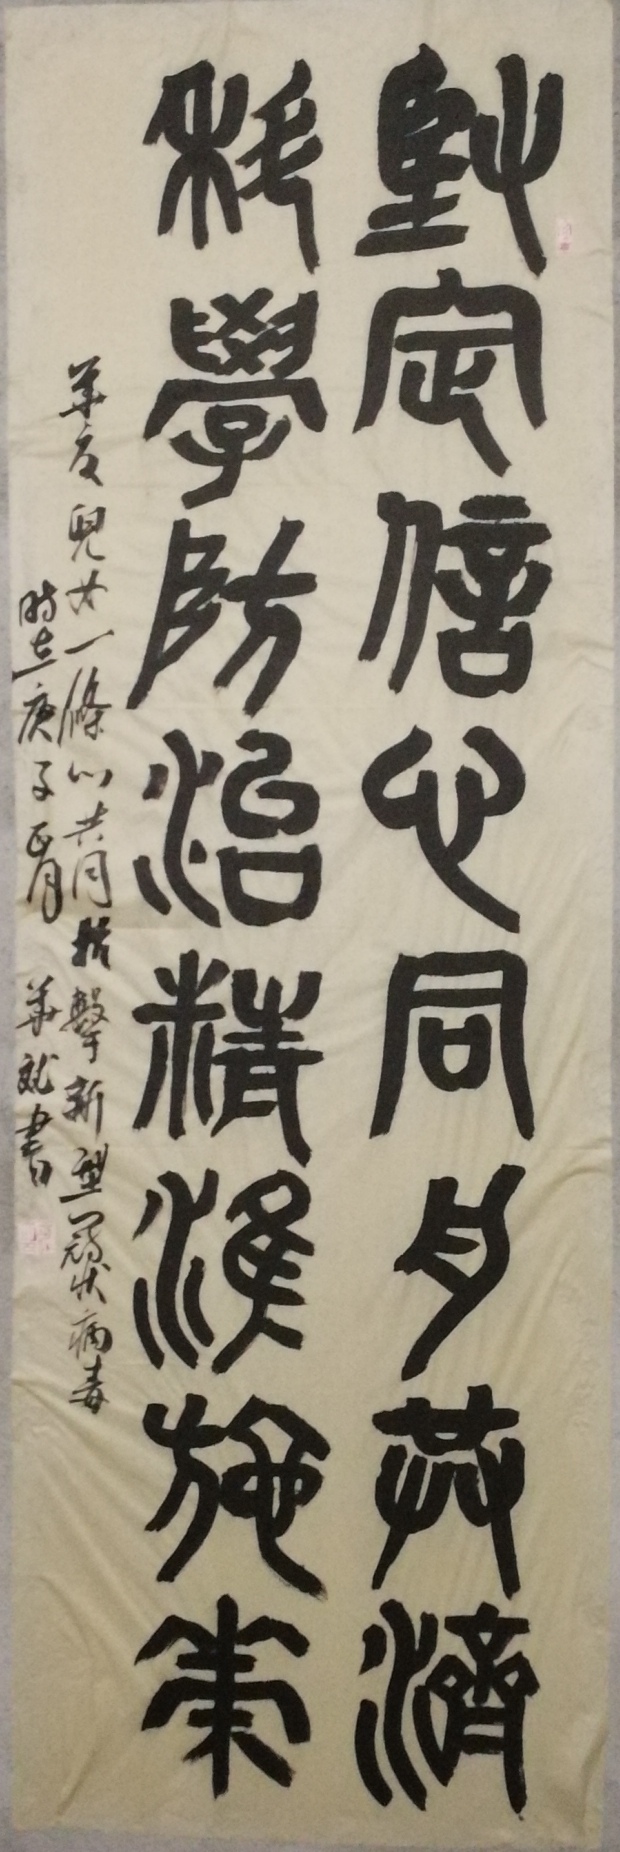 堅定信心同舟共濟
科學防治精準施策
華夏兒女一條心共同抗擊新型冠狀病毒
時在庚子正月 華書